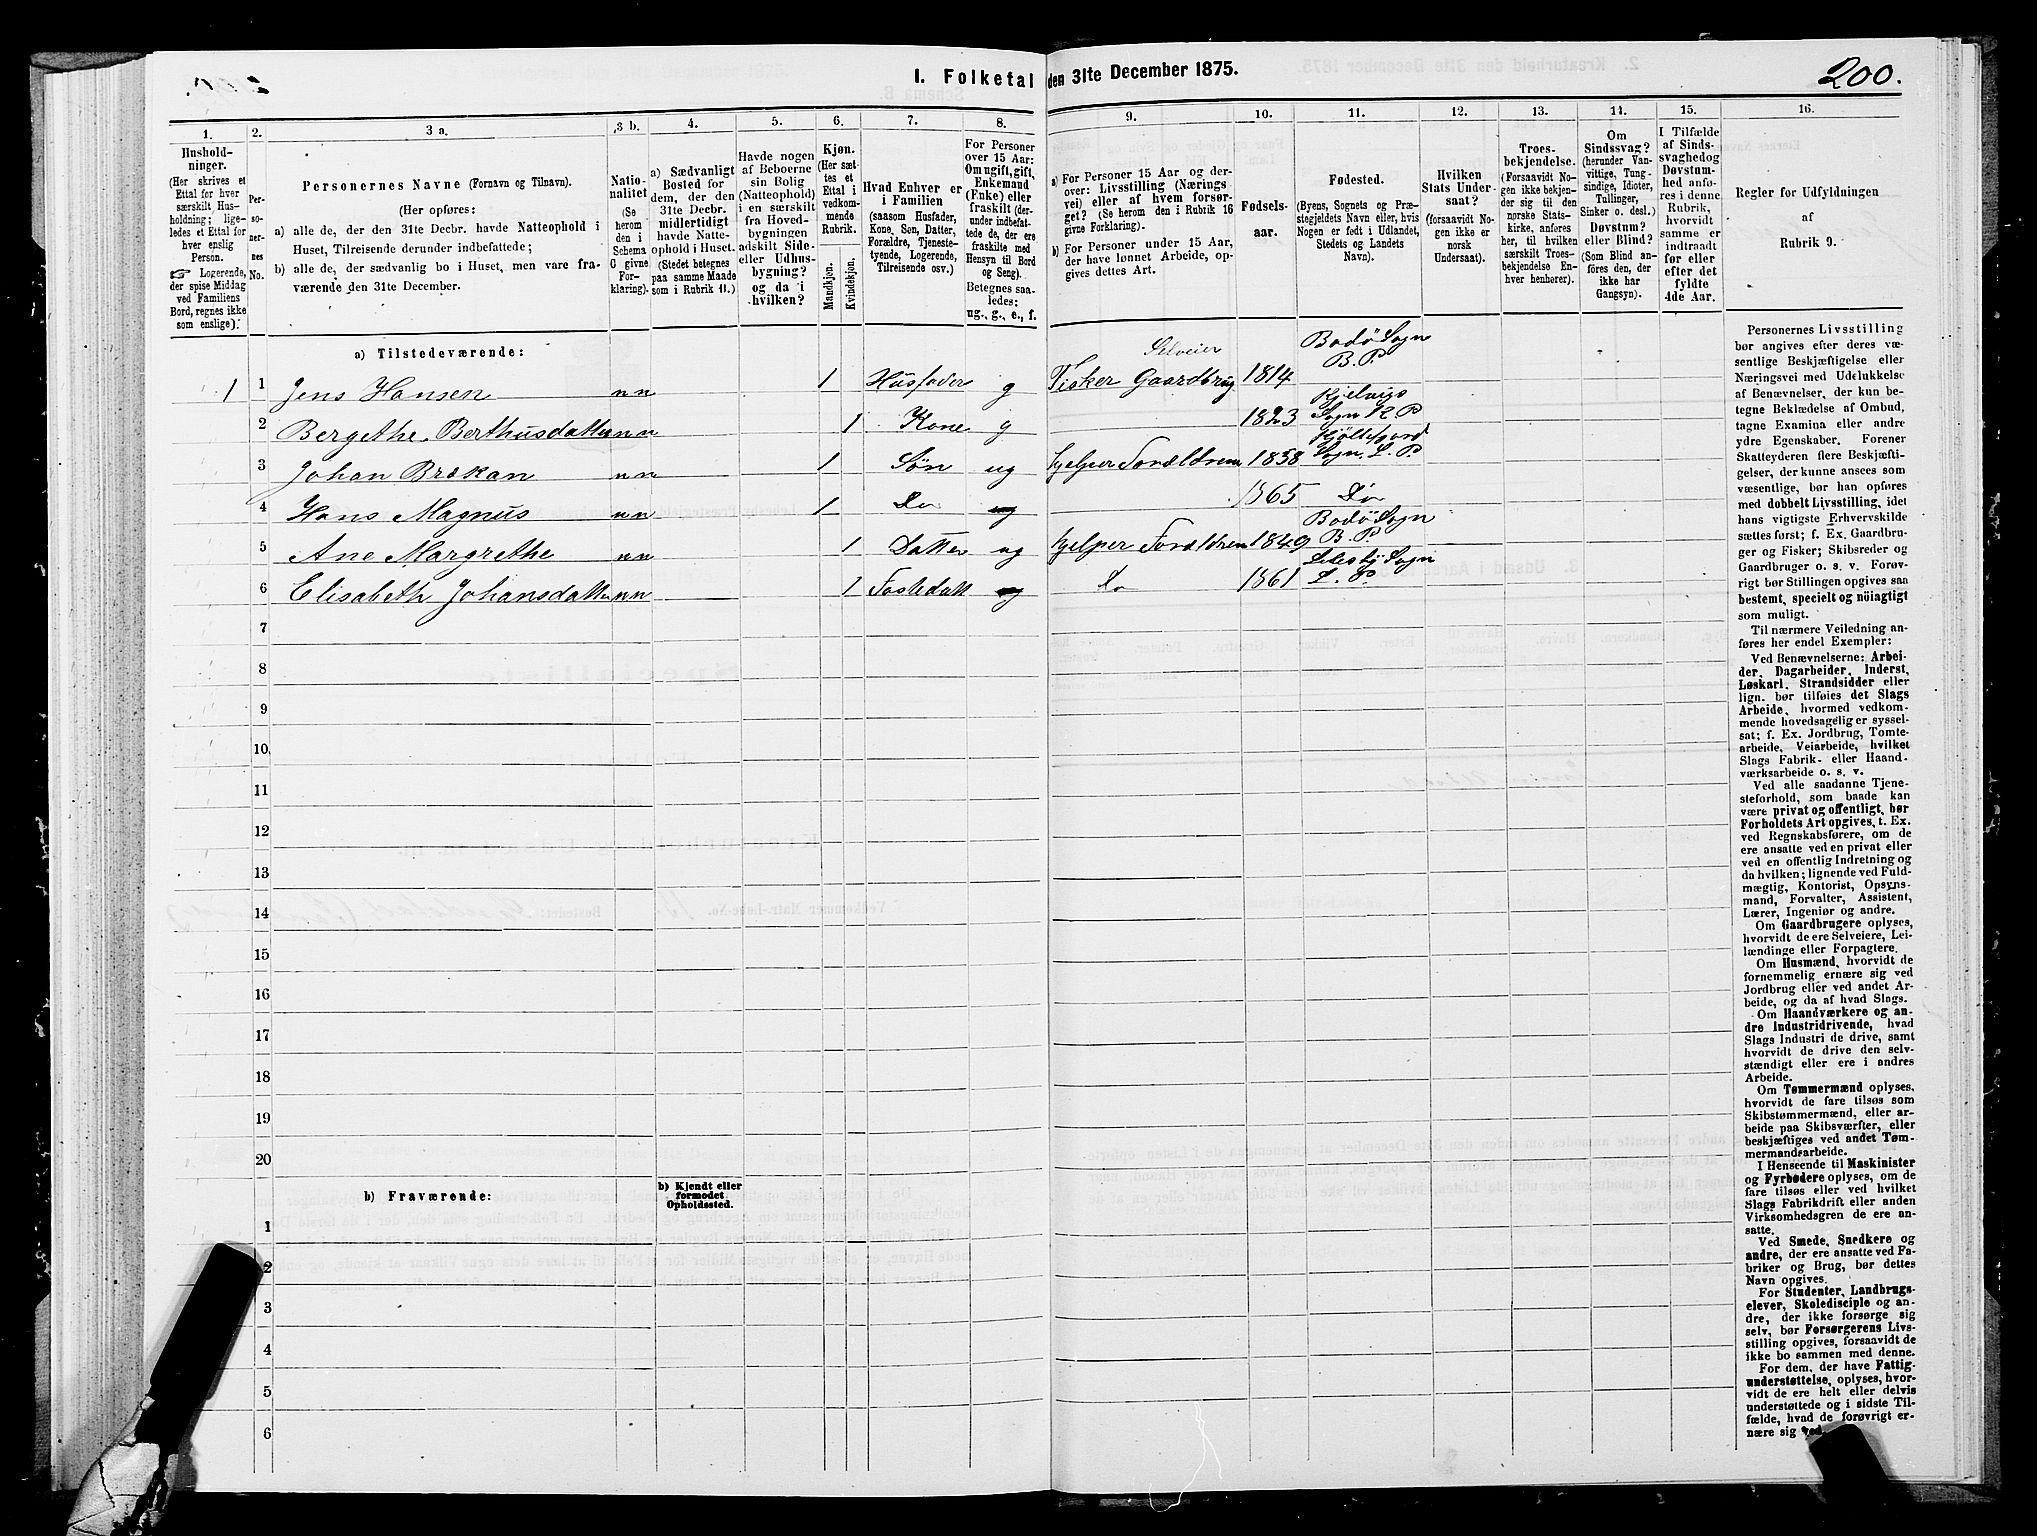 I. Folketal den 31te December 1875.
200.
1. 2. 3 a. 3 b. 4. 5. 6. 7. 8. 9. 10. 11. 12. 13. 14. 15. 16.
Husholdninger.
(Her skrives et
Ettal for hver
særskilt Husholdning;
ligeledes et Ettal for
hver enslig
Person.
☞ Logerende,
der spise Middag
ved Familiens
Bord, regnes ikke
som enslige).
Personernes No.
Personernes Navne (Fornavn og Tilnavn).
(Her opføres:
a) alle de, der den 31te Decbr. havde Natteophold i
Huset, Tilreisende derunder indbefattede;
b) alle de, der sædvanlig bo i Huset, men vare fraværende
den 31te December.
Nationalitet
(Se
herom
den i
Schema
C givne
Forklaring).
a) Sædvanligt
Bosted for
dem, der den
31te Decbr.
midlertidigt
havde Natteophold
i Huset.
(Stedet betegnes
paa samme Maade
som i Rubrik 11.)
Havde nogen
af Beboerne
sin Bolig
(Natteophold)
i en særskilt
fra Hovedbygningen
adskilt Side- eller
Udhusbygning?
og da i
hvilken?
Kjøn.
(Her sættes
et
Ettal i
vedkommende
Rubrik.
Mandkjøn.
Kvindekjøn.
Hvad Enhver er
i Familien
(saasom Husfader,
Kone, Søn, Datter,
Forældre, Tjenestetyende,
Logerende,
Tilreisende osv.)
For Personer
over 15 Aar:
Om ugift, gift,
Enkemand
(Enke) eller
fraskilt (derunder
indbefattede
de, der ere
fraskilte med
Hensyn til Bord
og Seng).
Betegnes saaledes:
ug., g., e., f.
a) For Personer 15 Aar og derover:
Livsstilling (Næringsvei)
eller af hvem forsørget?
(Se herom den i Rubrik 16
givne Forklaring).
b) For Personer under 15 Aar,
der have lønnet Arbeide, opgives
dettes Art.
Fødselsaar.
Fødested.
(Byens, Sognets og Præstegjeldets
Navn eller, hvis
Nogen er født i Udlandet,
Stedets og Landets
Navn).
Hvilken
Stats Undersaat?
(forsaavidt Nogen
ikke er
norsk
Undersaat).
Troesbekjendelse.
(Forsaavidt Nogen
ikke bekjender
sig til den
norske Statskirke,
anføres
her, til hvilken
særskilt Troesbekjendelse
Enhver
henhører).
Om
Sindssvag?
(herunder Vanvittige,
Tungsindige,
Idioter,
Tullinger,
Sinker o. desl.)
Døvstum?
eller Blind?
(Som Blind anføres
den, der
ikke har
Gangsyn).
I Tilfælde
af Sindssvaghed
og
Døvstumhed
anføres
i denne
Rubrik,
hvorvidt
samme er
indtraadt
før eller
efter det
fyldte
4de Aar.
Regler for Udfyldningen
af
Rubrik 9.
a) Tilstedeværende:
1 1 Jens Hansen nn 1 Husfader g Selveier Fisker Gaardbrug 1814 Bodø Sogn B. P.
2 Bergethe Berthusdatter nn 1 Kone g 1823 Kjelvigs Sogn K P
3 Johan Brekan nn 1 Søn ug hjelper Forældrene 1858 Kjøllefjord Sogn L. P.
4 Hans Magnus nn 1 Do ug 1865 Do
5 Ane Margrethe nn 1 Datter ug hjelper Forældrene 1849 Bodø Sogn B. P.
6 Elisabeth Johansdatter nn 1 Fostedatt ug Do 1861 Lebesby Sogn L. P.
7
8
9
10
11
12
13
14
15
16
17
18
19
20
b) Fraværende:
b) Kjendt eller
formodet
Opholdssted.
1
2
3
4
5
6
Personernes Livsstilling
bør angives efter deres væsentlige
Beskjæftigelse eller
Næringsvei med Udelukkelse
af Benævnelser, der kun betegne
Beklædelse af Ombud,
tagne Examina eller andre
ydre Egenskaber. Forener
Skatteyderen flere Beskjæftigelser,
der kunne ansees som
væsentlige, bør han opføres
med dobbelt Livsstilling, idet
hans vigtigste Erhvervskilde
sættes først; f. Ex. Gaardbruger
og Fisker; Skibsreder og
Gaardbruger o. s. v. Forøvrigt
bør Stillingen opgives saa
bestemt, specielt og nöiagtigt
som muligt.
Til nærmere Veiledning anføres
her endel Exempler:
Ved Benævnelserne: Arbeider,
Dagarbeider, Inderst,
Løskarl, Strandsidder eller
lign. bør tilføies det Slags
Arbeide, hvormed vedkommende
hovedsagelig er sysselsat;
f. Ex. Jordbrug, Tomtearbeide,
Veiarbeide, hvilket
Slags Fabrik- eller Haandværksarbeide
o. s. v.
Ved alle saadanne Tjenesteforhold,
som baade kan
være privat og offentligt, bør
Forholdets Art opgives, t. Ex.
ved Regnskabsførere, om de
ere ansatte ved en privat eller
ved en offentlig Indretning og
da hvilken; lignende ved Fuldmægtig,
Kontorist, Opsynsmand,
Forvalter, Assistent,
Lærer, Ingeniør og andre.
Om Gaardbrugere oplyses,
hvorvidt de ere Selveiere, Leilændinge
eller Forpagtere.
Om Husmænd, hvorvidt de
fornemmelig ernære sig ved
Jordbrug eller ved andet Arbeide,
og da af hvad Slags.
Om Haandværkere og andre
Industridrivende, hvad
Slags Industri de drive, samt
hvorvidt de drive den selvstændigt
eller ere i andres
Arbeide.
Om Tømmermænd oplyses,
hvorvidt de fare tilsøs som
Skibstømmermænd, eller arbeide
paa Skibsværfter, eller
beskjæftiges ved andet Tømmermandsarbeide.
I Henseende til Maskinister
og Fyrbødere oplyses, om de
fare tilsøs eller ved hvilket
Slags Fabrikdrift eller anden
Virksomhedsgren de ere ansatte.
Ved Smede, Snedkere og
andre, der ere ansatte ved Fabriker
og Brug, bør dettes
Navn opgives.
For Studenter, Landbrugselever,
Skoledisciple og andre,
der ikke forsørge sig
selv, bør Forsørgerens Livsstilling
opgives, forsaavidt de
ikke bo sammen med denne.
For dem, der have Fattigunderstøttelse,
oplyses, hvorvidt
de ere helt eller delvis
understøttede og i sidste Tilfælde,
hvad de forøvrigt ernære
sig ved.